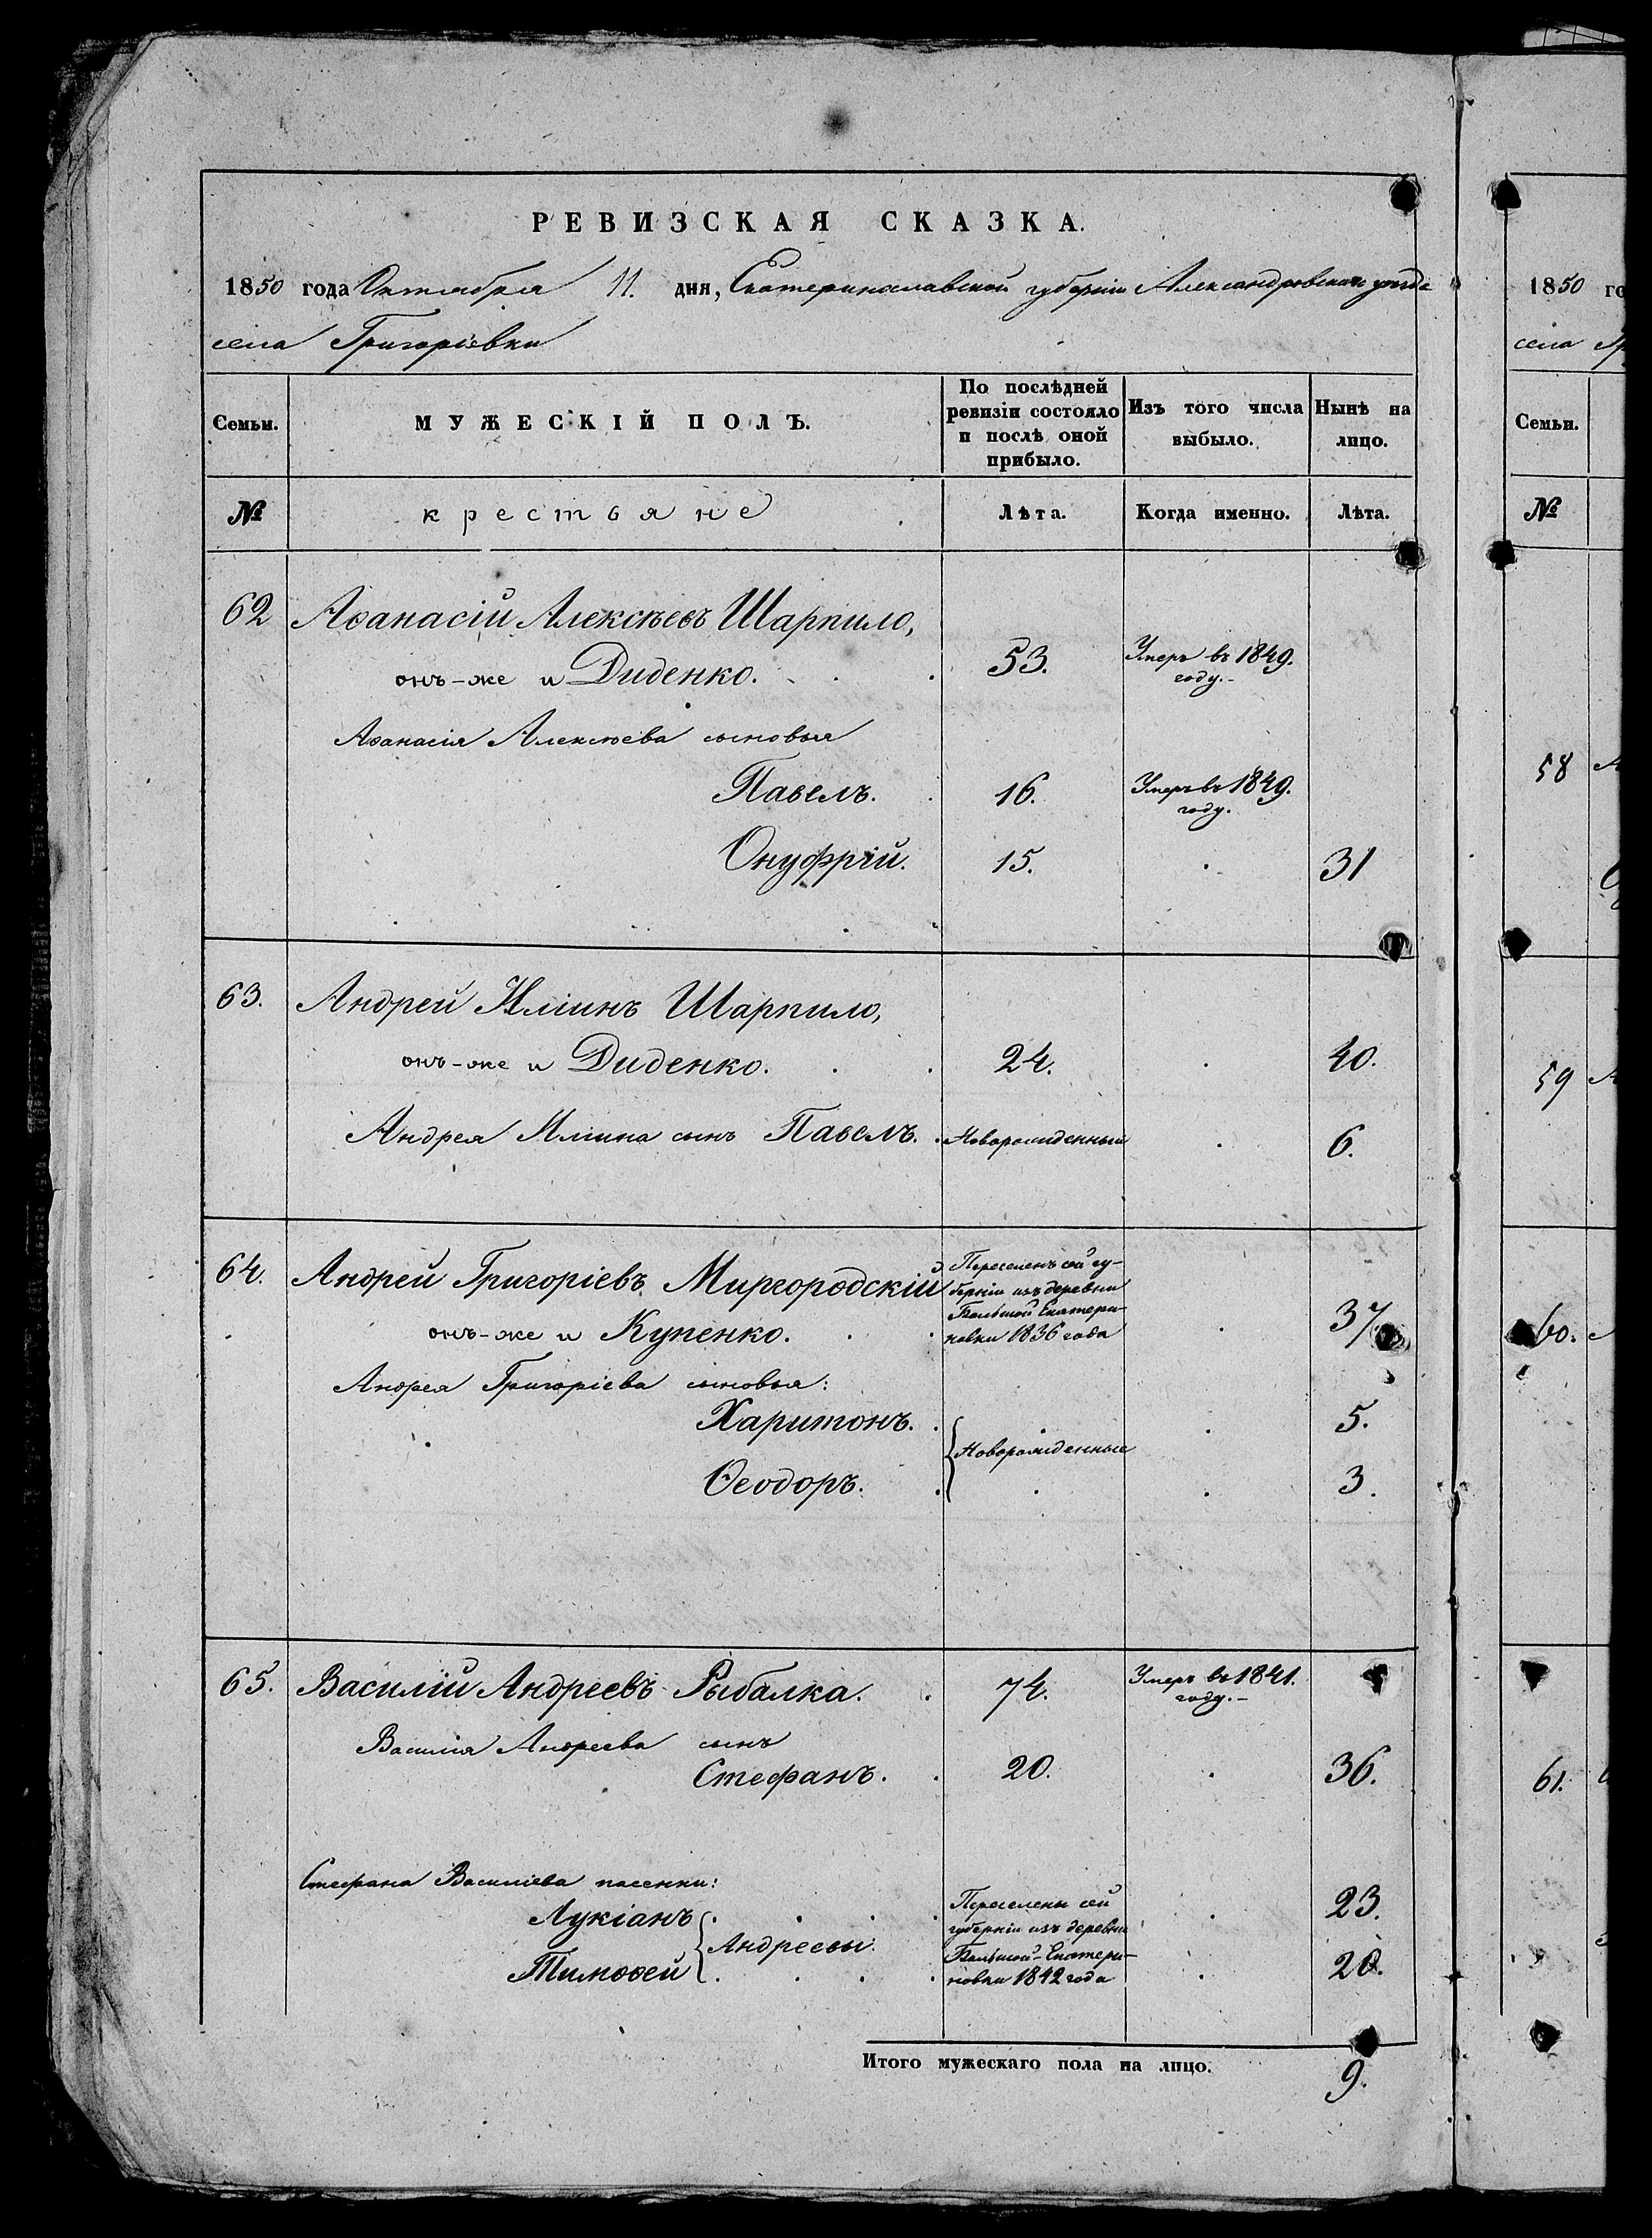 РЕВИЗСКАЯ СКАЗКА.
1850 года Октября 11. дня, Екатеринославской губернии Александровскаго уезда
села Григоріевки
Семьи.
МУЖЕСКІЙ ПОЛЪ.
По послѣдней
ревизіи состояло
и послѣ оной
прибыло.
Изъ того числа
выбыло.
Нынѣ на
лицо.
№
крестьяне
Лѣта.
Когда именно.
Лѣта.
62 Аѳанасій Алексѣевъ Шарпило,
онъ-же и Диденко. 53. Умеръ въ 1849.
году.
Аѳанасія Алексѣева сыновья
Павелъ. 16. Умеръ въ 1849.
году.
Онуфрій. 15. 31
63. Андрей Иліинъ Шарпило,
онъ-же и Диденко. 24. 40.
Андрея Иліина сынъ Павелъ. Новорожденный 6.
64. Андрей Григоріевъ Миргородскій
онъ-же и Купенко.
Переселенъ сей гу-
берніи изъ деревни
Большой Екатери-
новки 1836 года
37
Андрея Григоріева сыновья:
Харитонъ. 5.
Новорожденные
Ѳеодоръ. 3.
65. Василій Андреевъ Рыбалка. 74. Умеръ въ 1841.
году.
Василія Андреева сынъ
Стефанъ. 20. 36.
Стефана Василіева пасенки:
Лукіанъ
Андреевы.
Тимоѳей
Переселены сей
губерніи изъ деревни
Большой-Екатери-
новки 1842 года
23.
20.
Итого мужескаго пола на лицо.
9.
1850 го
села Гр
Семьи.
№
58
59
60.
61.